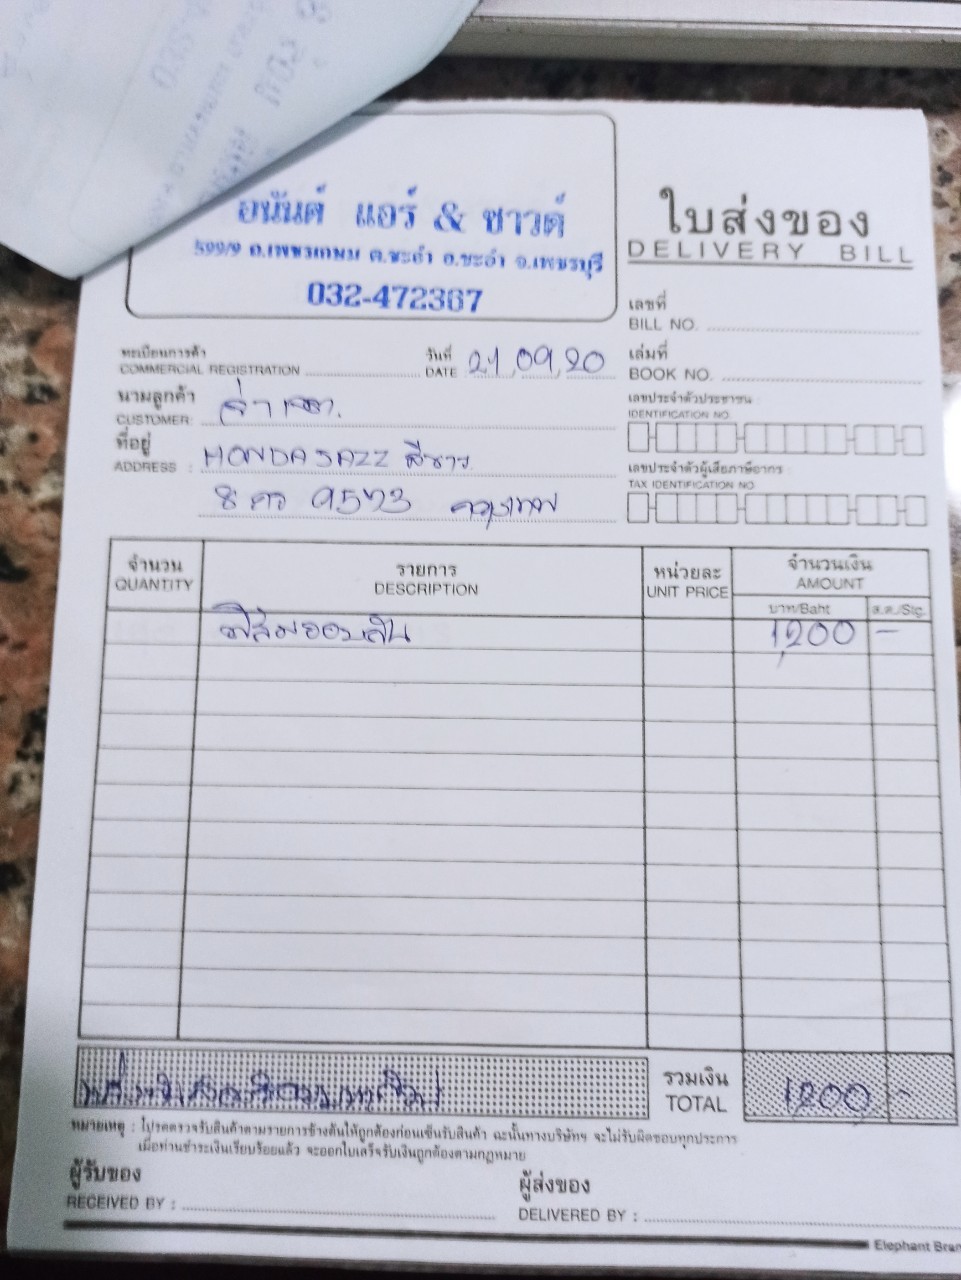 อนันต์ แอร์ & ซาวด์
599/9 ถ.เพชรเกษม ต.ชะอำ อ.ชะอำ จ.เพชรบุรี
032-472367
ใบส่งของ
DELIVERY BILL
เลขที่
BILL NO.
ทะเบียนการค้า
COMMERCIAL REGISTRATION
วันที่
DATE 21,09,20
เล่มที่
BOOK NO.
นามลูกค้า
CUSTOMER:
เลขประจำตัวประชาชน
IDENTIFICATION NO.
ที่อยู่
ADDRESS : HONDA JAZZ สีขาว
เลขประจำตัวผู้เสียภาษีอากร
TAX IDENTIFICATION NO.
8 กว 9573 กรุงเทพ
จำนวน
QUANTITY
รายการ
DESCRIPTION
หน่วยละ
UNIT PRICE
จำนวนเงิน
AMOUNT
บาท/Baht
ส.ต./Stg.
ฟิล์มรอบคัน 1,200 -
รวมเงิน
TOTAL
1,200 -
หมายเหตุ : โปรดตรวจรับสินค้าตามรายการข้างต้นให้ถูกต้องก่อนเซ็นรับสินค้า ฉะนั้นทางบริษัทฯ จะไม่รับผิดชอบทุกประการ
เมื่อท่านชำระเงินเรียบร้อยแล้ว จะออกใบเสร็จรับเงินถูกต้องตามกฎหมาย
ผู้รับของ
RECEIVED BY :
ผู้ส่งของ
DELIVERED BY :
Elephant Bran